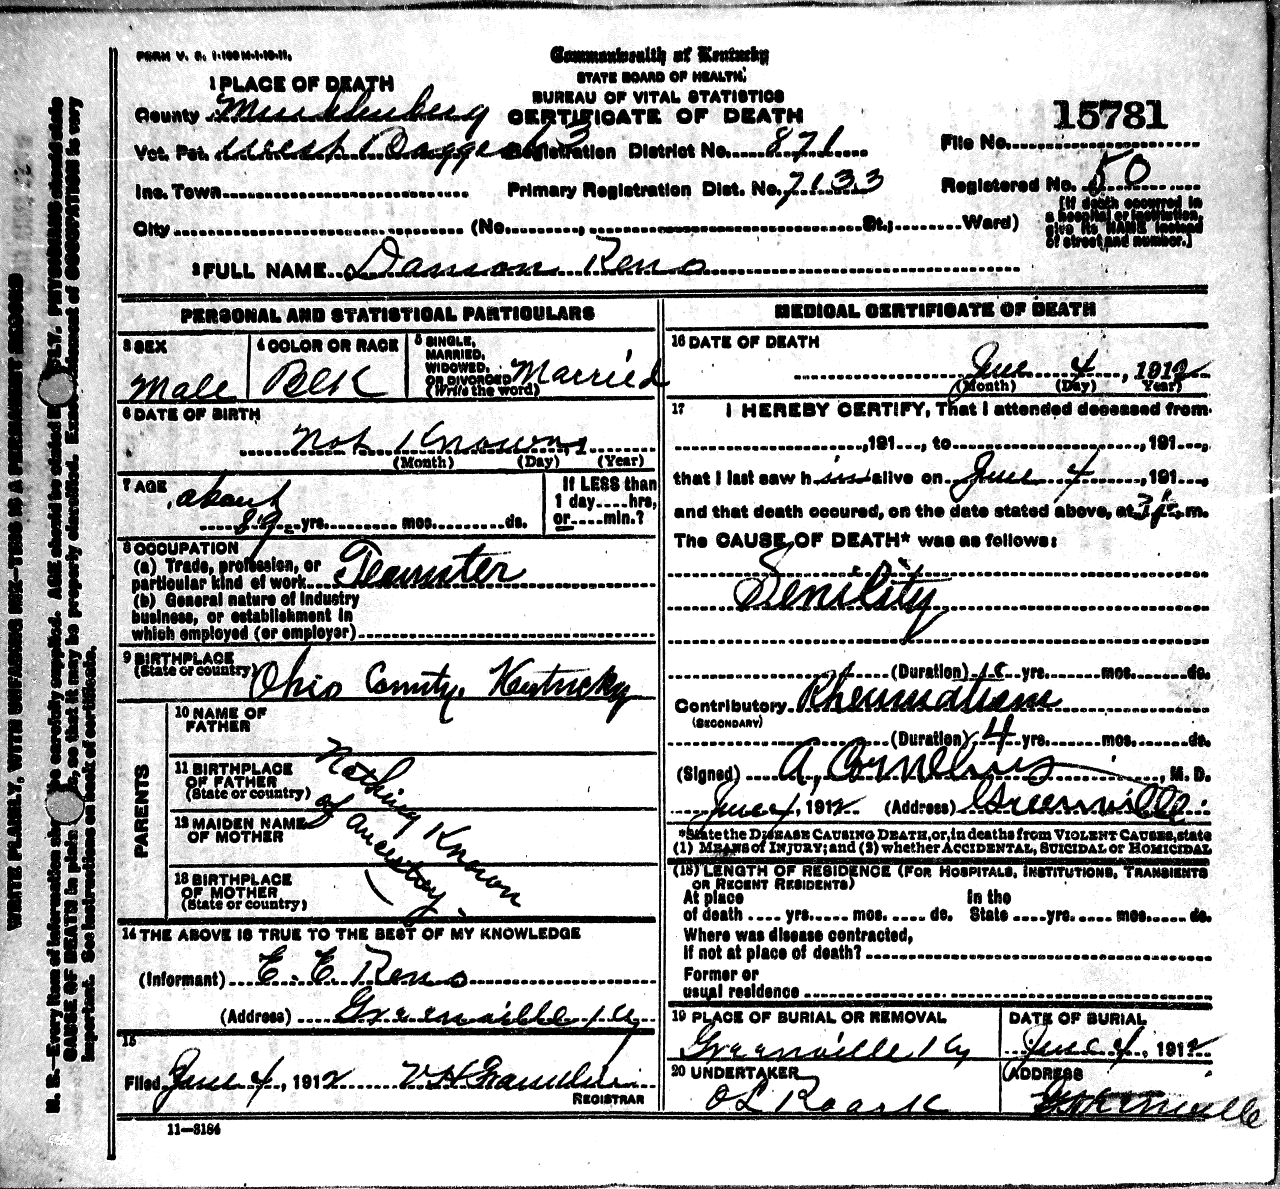 FORM V. S. 1-100 M-1-19-11.
Commonwealth of Kentucky
STATE BOARD OF HEALTH,
BUREAU OF VITAL STATISTICS
CERTIFICATE OF DEATH
1 PLACE OF DEATH
County Muhlenberg
Vot. Pct. West 3 Registration District No. 871
File No. 15781
Inc. Town Primary Registration Dist. No. 7133
Registered No. 50
City (No. , St.; Ward)
[If death occurred in
a hospital or institution,
give its NAME instead
of street and number.]
2 FULL NAME Damon Reno
PERSONAL AND STATISTICAL PARTICULARS
3 SEX
Male
4 COLOR OR RACE
Blk
5 SINGLE,
MARRIED,
WIDOWED,
OR DIVORCED
(Write the word)
Married
6 DATE OF BIRTH
Not Known
(Month) (Day) (Year)
7 AGE
about
89 yrs. mos. ds.
If LESS than
1 day hrs,
or min.?
8 OCCUPATION
(a) Trade, profession, or
particular kind of work Teamster
(b) General nature of industry
business, or establishment in
which employed (or employer)
9 BIRTHPLACE
(State or country) Ohio County, Kentucky
PARENTS
10 NAME OF
FATHER
11 BIRTHPLACE
OF FATHER
(State or country)
12 MAIDEN NAME
OF MOTHER
13 BIRTHPLACE
OF MOTHER
(State or country)
Nothing Known
of Ancestory.
14 THE ABOVE IS TRUE TO THE BEST OF MY KNOWLEDGE
(Informant) E. E. Reno
(Address) Greenville Ky
15
Filed June 4, 1912
REGISTRAR
11—3184
MEDICAL CERTIFICATE OF DEATH
16 DATE OF DEATH
June 4, 1912
(Month) (Day) Year)
17 I HEREBY CERTIFY, That I attended deceased from
,191 , to ,191 ,
that I last saw him alive on June 4 ,191 ,
and that death occured, on the date stated above, at 3 p. m.
The CAUSE OF DEATH* was as follows:
Senility
(Duration) yrs. mos. ds.
Contributory Rheumatism
(SECONDARY)
(Duration) 4 yrs. mos. ds.
(Signed) A. Cornelius, M. D.
June 4, 1912 (Address) Greenville
*State the DISEASE CAUSING DEATH, or, in deaths from VIOLENT CAUSES, state
(1) MEANS of INJURY; and (2) whether ACCIDENTAL, SUICIDAL or HOMICIDAL
(18) LENGTH OF RESIDENCE (FOR HOSPITALS, INSTITUTIONS, TRANSIENTS
OR RECENT RESIDENTS)
At place In the
of death yrs. mos. ds. State yrs. mos. ds.
Where was disease contracted,
if not at place of death?
Former or
usual residence
19 PLACE OF BURIAL OR REMOVAL
Greenville Ky
DATE OF BURIAL
June 4, 1912
20 UNDERTAKER
O L Roark
ADDRESS
Greenville
WRITE PLAINLY, WITH UNFADING INK—THIS IS A PERMANENT RECORD
N. B.—Every item of information should be carefully supplied. AGE should be stated PHYSICIANS should state
CAUSE OF DEATH in plain so that it may be properly classified. Exact statement of OCCUPATION is very
important. See instructions on back of certificate.